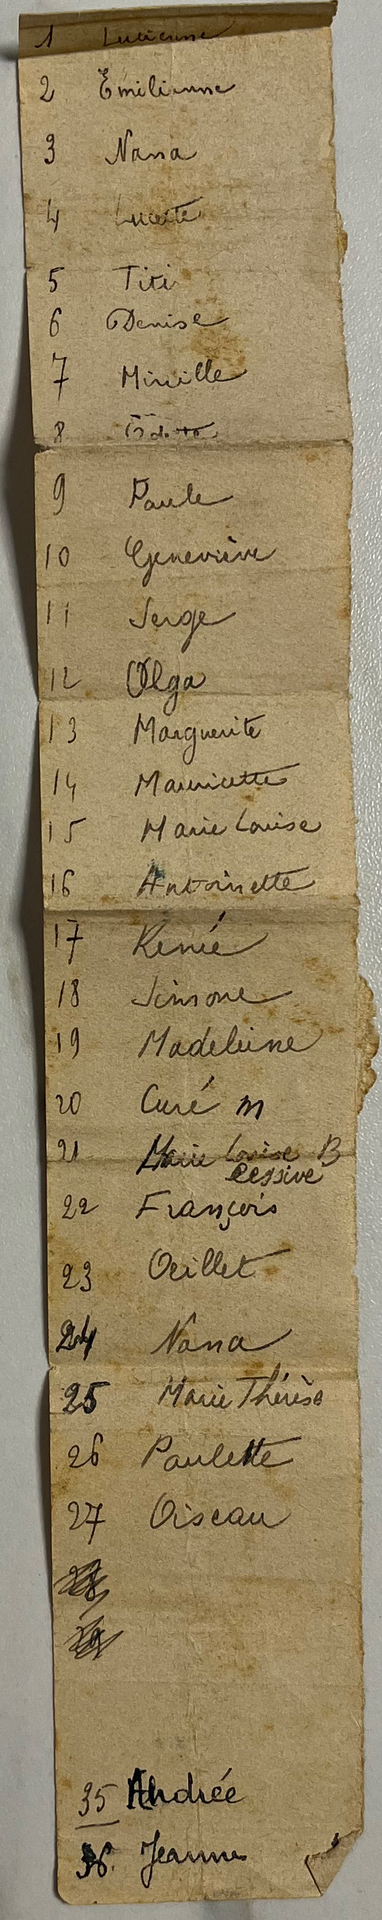 1 Lucienne
2 Emilienne
3 Nana
4 Lucette
5 Titi
6 Denise
7 Mireille
8
9 Paule
10 Geneviève
11 Serge
12 Olga
13 Marguerite
14 Mauricette
15 Marie Louise
16 Antoinette
17 Renée
18 Simone
19 Madeleine
20 Curé m
21 Marie Louise B
22 François
23 Oeillet
24 Nana
25 Marie Thérèse
26 Paulette
27 Oiseau
35 Andrée
36. Jeanne